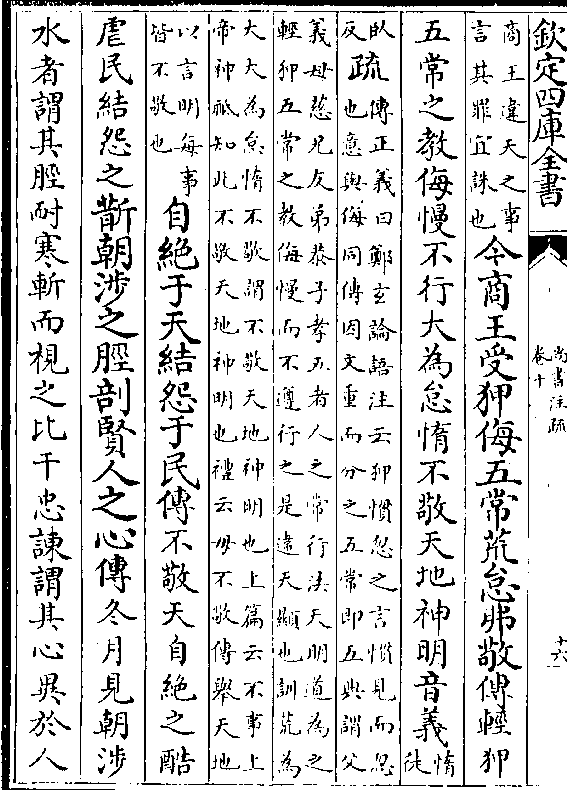 欽定四庫全書
尚書注疏
卷十
十六
商王違天之事
言其罪宜誅也
今商王受狎侮五常荒怠弗敬傳輕狎
五常之教侮慢不行大為怠惰不敬天地神明音義
惰徒
臥
反
疏
傳正義曰鄭玄論語注云狎慣忽之言慣見而忽
也意與侮同傳因文重而分之五常即五典謂父
義母慈兄友弟恭子孝五者人之常行法天明道為之
輕狎五常之教侮慢而不遵行之是違天顯也訓荒為
大大為怠惰不敬謂不敬天地神明也上篇云不事上
帝神祗知此不敬天地神明也禮云毋不敬傳舉天地
以言明每事
皆不敬也
自絕于天結怨于民傳不敬天自絕之酷
虐民結怨之斮朝涉之脛剖賢人之心傳冬月見朝涉
水者謂其脛耐寒斬而視之比干忠諫謂其心異於人